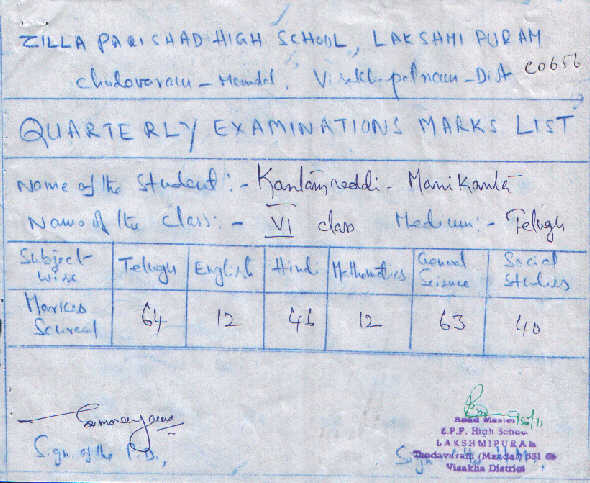 ZILLA PARISHAD HIGH SCHOOL, LAKSHMIPURAM
Chodavaram - Mandal, Visakhapatnam - Dist C0656
QUARTERLY EXAMINATIONS MARKS LIST
Name of the Student :- Kantamreddi - Manikanta
Name of the Class :- VI class Medium :- Telugu
Subject-wise Telugu English Hindi Mathematics General Science Social Studies
Markes Scured 64 12 46 12 63 40
Head Master
Z.P.P. High School
Sign. of the P.D., LAKSHMIPURAM
Sign
Chodavaram (Mandal) 531
Visakha District